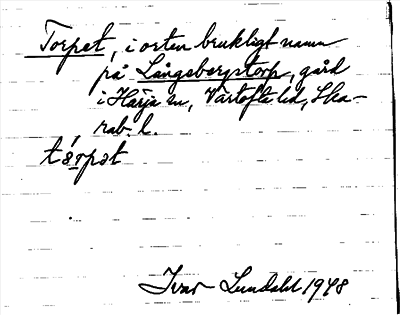 Torpet, i orten brukligt namn
på Långsbergstorp, gård
i Härja sn, Vartofta hd, Ska-
rab. l.
tǿrpət
Ivar Lundahl 1948